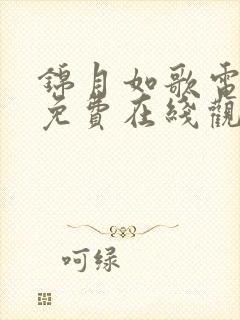 錦月如歌電
免費在綫觀
呵绿